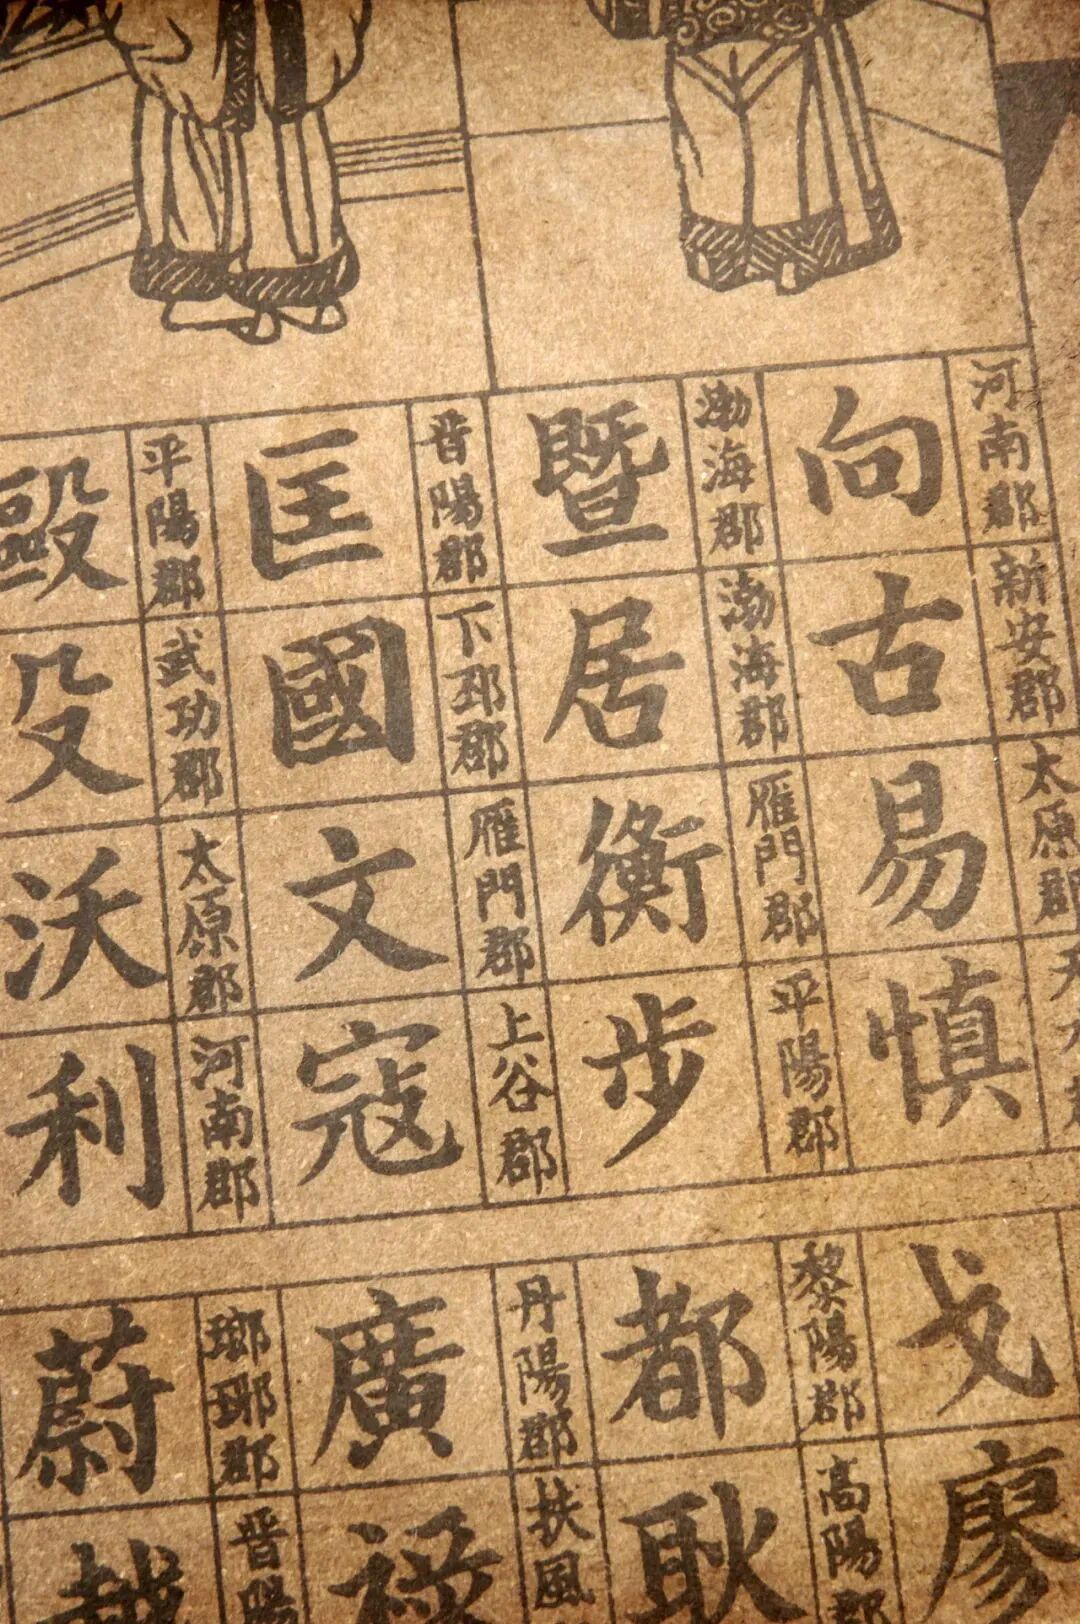 河南郡 新安郡 太原郡
向 古 易 慎
渤海郡 渤海郡 雁門郡 平陽郡
暨 居 衡 步
晋陽郡 下邳郡 雁門郡 上谷郡
匡 國 文 寇
平陽郡 武功郡 太原郡 河南郡
毆 殳 沃 利
戈 廖
黎陽郡 高陽郡
都 耿
丹陽郡 扶風
廣 祿
瑯琊郡 晋陽
蔚 越